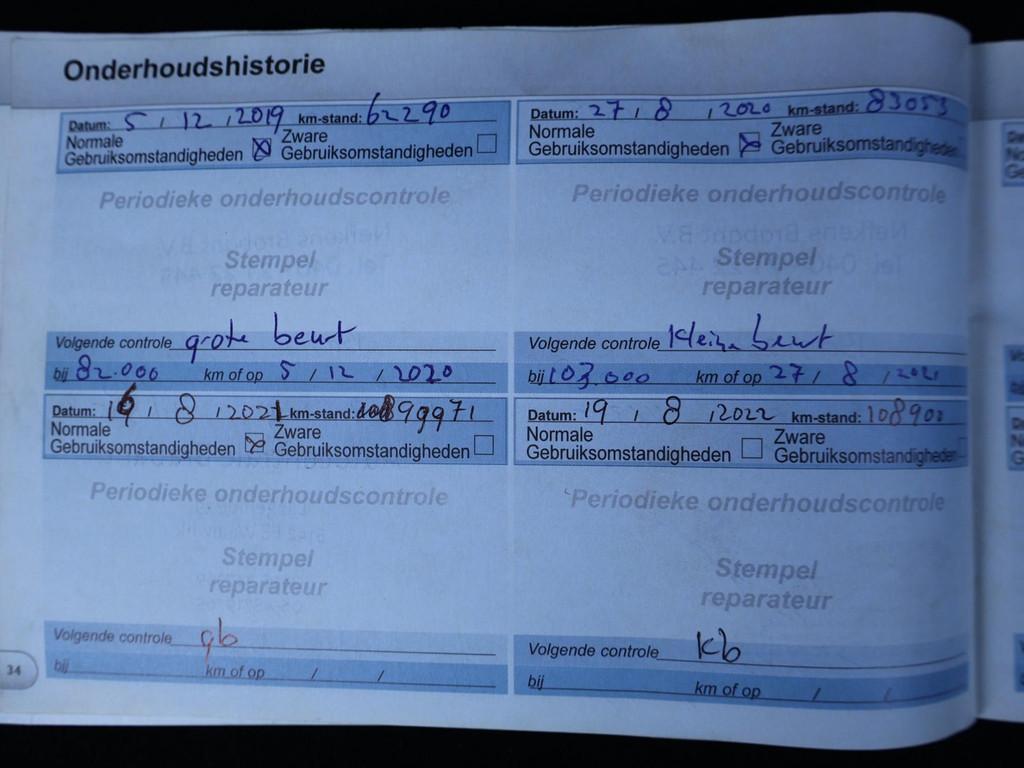 Onderhoudshistorie
Datum: 5 / 12 / 2019 km-stand: 62290
Normale Zware
Gebruiksomstandigheden Gebruiksomstandigheden
Periodieke onderhoudscontrole
Stempel
reparateur
Volgende controle grote beurt
bij 82.000 km of op 5 / 12 / 2020
Datum: 27 / 8 / 2020 km-stand: 83053
Normale Zware
Gebruiksomstandigheden Gebruiksomstandigheden
Periodieke onderhoudscontrole
Stempel
reparateur
Volgende controle Kleine beurt
bij 103.000 km of op 27 / 8 / 2021
Datum: 16 / 8 / 2021 km-stand: 99971
Normale Zware
Gebruiksomstandigheden Gebruiksomstandigheden
Periodieke onderhoudscontrole
Stempel
reparateur
Volgende controle gb
bij km of op / /
Datum: 19 / 8 / 2022 km-stand: 108900
Normale Zware
Gebruiksomstandigheden Gebruiksomstandigheden
Periodieke onderhoudscontrole
Stempel
reparateur
Volgende controle kb
bij km of op / /
34